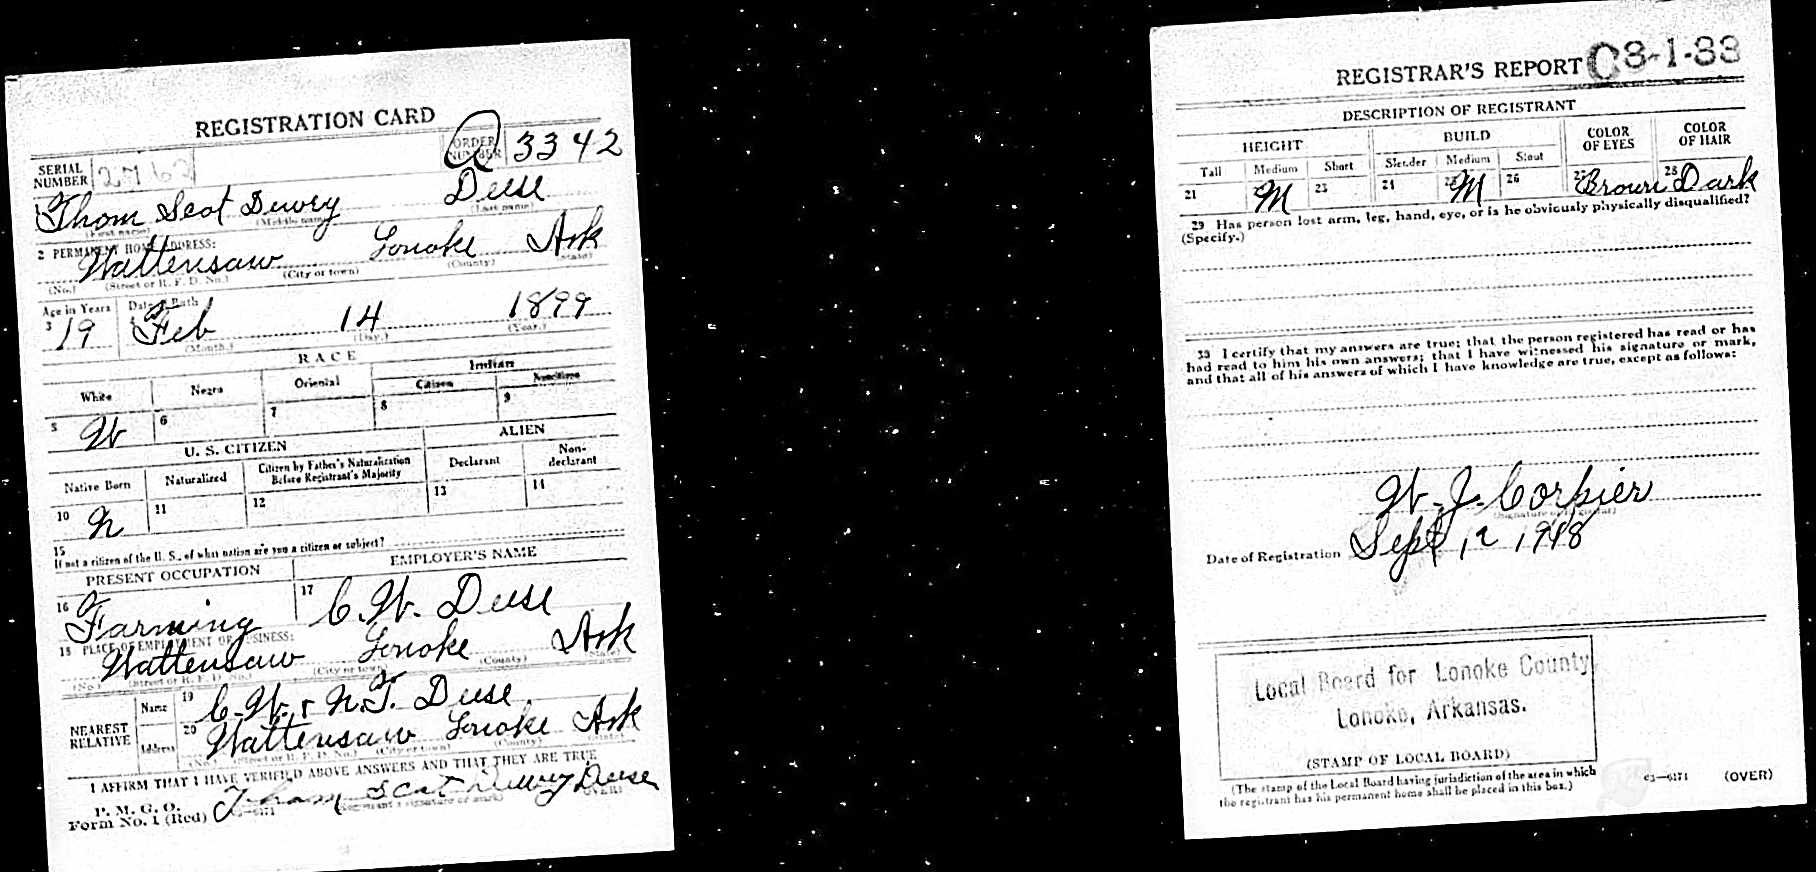 REGISTRATION CARD
SERIAL NUMBER 2762 ORDER NUMBER A 3342
1 Thom Scot Dewey Deese
(First name) (Middle name) (Last name)
2 PERMANENT HOME ADDRESS:
Wattensaw Lonoke Ark
(No.) (Street or R. F. D. No.) (City or town) (County) (State)
Age in Years Date of Birth
3 19 4 Feb 14 1899
(Month.) (Day.) (Year.)
RACE
White Negro Oriental Indian
Citizen Noncitizen
5 W 6 7 8 9
U. S. CITIZEN ALIEN
Native Born Naturalized Citizen by Father's Naturalization Before Registrant's Majority Declarant Non-declarant
10 N 11 12 13 14
15 If not a citizen of the U. S., of what nation are you a citizen or subject?
PRESENT OCCUPATION EMPLOYER'S NAME
16 Farming 17 C. W. Deese
18 PLACE OF EMPLOYMENT OR BUSINESS:
Wattensaw Lonoke Ark
(No.) (Street or R. F. D. No.) (City or town) (County) (State)
NEAREST RELATIVE Name 19 C. W. & N. T. Deese
Address 20 Wattensaw Lonoke Ark
(No.) (Street or R. F. D. No.) (City or town) (County) (State)
I AFFIRM THAT I HAVE VERIFIED ABOVE ANSWERS AND THAT THEY ARE TRUE
P. M. G. O.
Form No. 1 (Red) 03—6171 Tham Scot Dewey Deese
(Registrant's signature or mark) (OVER)
REGISTRAR'S REPORT C3-1-33
DESCRIPTION OF REGISTRANT
HEIGHT BUILD COLOR OF EYES COLOR OF HAIR
Tall Medium Short Slender Medium Stout
21 22 M 23 24 25 M 26 27 Brown 28 Dark
29 Has person lost arm, leg, hand, eye, or is he obviously physically disqualified?
(Specify.)
30 I certify that my answers are true; that the person registered has read or has
had read to him his own answers; that I have witnessed his signature or mark,
and that all of his answers of which I have knowledge are true, except as follows:
W. J. Corpier
(Signature of Registrar)
Date of Registration Sept 12 1918
Local Board for Lonoke County
Lonoke, Arkansas.
(STAMP OF LOCAL BOARD)
(The stamp of the Local Board having jurisdiction of the area in which
the registrant has his permanent home shall be placed in this box.)
03—6171 (OVER)